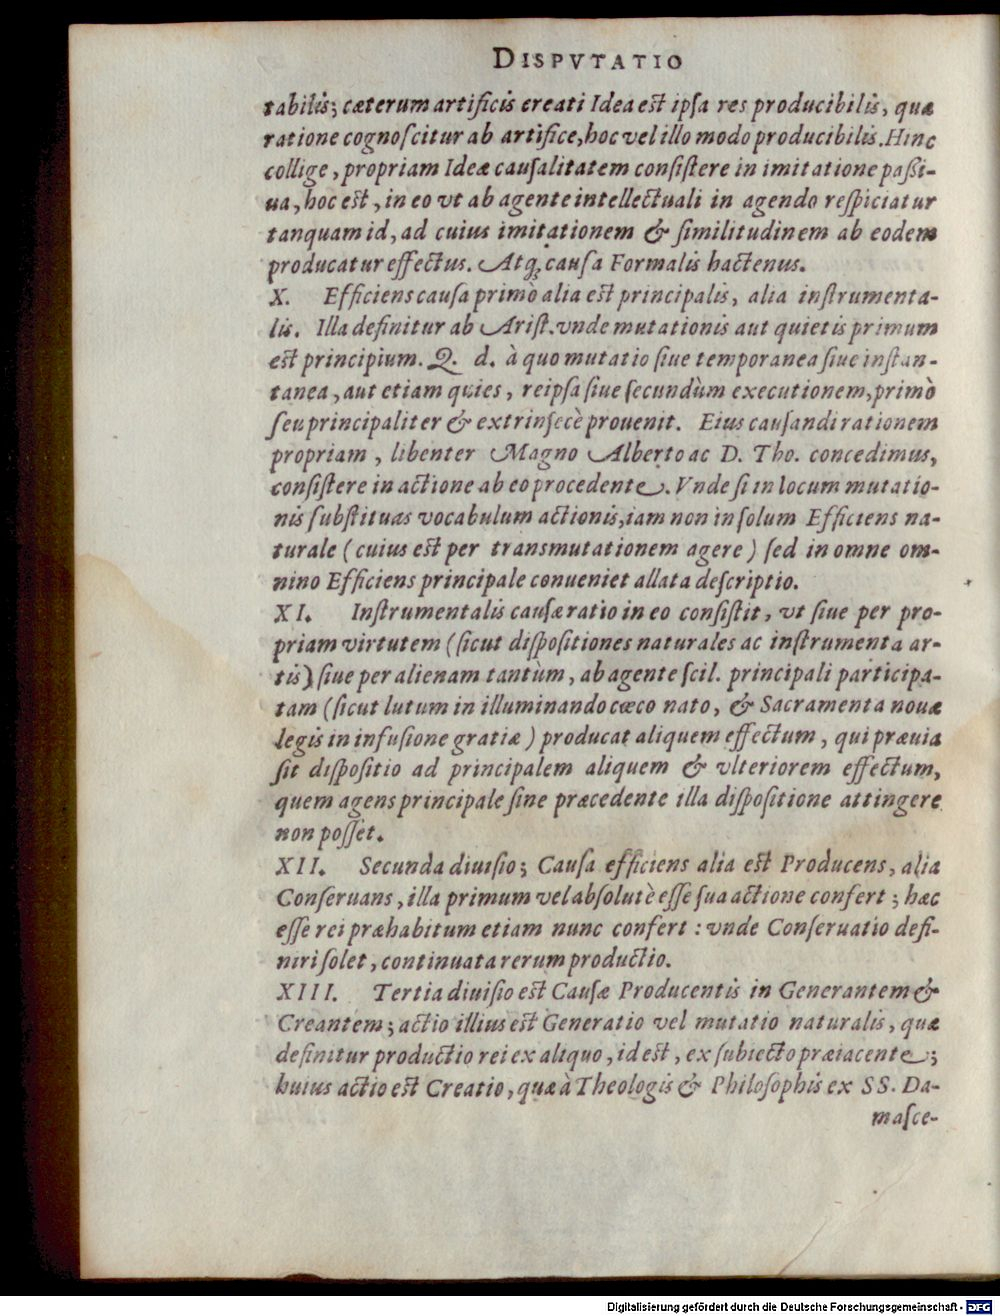 DISPVTATIO
tabilis; cæterum artificis creati Idea est ipſa res producibilis, quæ
ratione cognoſcitur ab artifice, hoc vel illo modo producibilis. Hinc
collige, propriam Ideæ cauſalitatem conſiſtere in imitatione paßi-
ua, hoc eſt, in eo vt ab agente intellectuali in agendo reſpiciatur
tanquam id, ad cuius imitationem & ſimilitudinem ab eodem
producatur effectus. Atq; cauſa Formalis hactenus.
X. Efficiens cauſa primò alia eſt principalis, alia inſtrumenta-
lis. Illa definitur ab Ariſt. vnde mutationis aut quietis primum
eſt principium. Q. d. à quo mutatio ſiue temporanea ſiue inſtan-
tanea, aut etiam quies, reipſa ſiue ſecundùm executionem, primò
ſeu principaliter & extrinſecè prouenit. Eius cauſandi rationem
propriam, libenter Magno Alberto ac D. Tho. concedimus,
conſiſtere in actione ab eo procedente. Vnde ſi in locum mutatio-
nis ſubſtituas vocabulum actionis, iam non in ſolum Efficiens na-
turale (cuius eſt per transmutationem agere) ſed in omne om-
nino Efficiens principale conueniet allata deſcriptio.
XI. Inſtrumentalis cauſæ ratio in eo conſiſtit, vt ſiue per pro-
priam virtutem (ſicut diſpoſitiones naturales ac inſtrumenta ar-
tis) ſiue per alienam tantùm, ab agente ſcil. principali participa-
tam (ſicut lutum in illuminando cæco nato, & Sacramenta nouæ
legis in infuſione gratiæ) producat aliquem effectum, qui præuia
ſit diſpoſitio ad principalem aliquem & vlteriorem effectum,
quem agens principale ſine præcedente illa diſpoſitione attingere
non poſſet.
XII. Secunda diuiſio; Cauſa efficiens alia eſt Producens, alia
Conſeruans, illa primum vel abſolutè eſſe ſua actione confert; hæc
eſſe rei præhabitum etiam nunc confert: vnde Conſeruatio defi-
niri ſolet, continuata rerum productio.
XIII. Tertia diuiſio eſt Cauſæ Producentis in Generantem &
Creantem; actio illius eſt Generatio vel mutatio naturalis, quæ
definitur productio rei ex aliquo, id eſt, ex ſubiecto præiacente;
huius actio eſt Creatio, quæ à Theologis & Philoſophis ex SS. Da-
maſce-
Digitalisierung gefördert durch die Deutsche Forschungsgemeinschaft - DFG